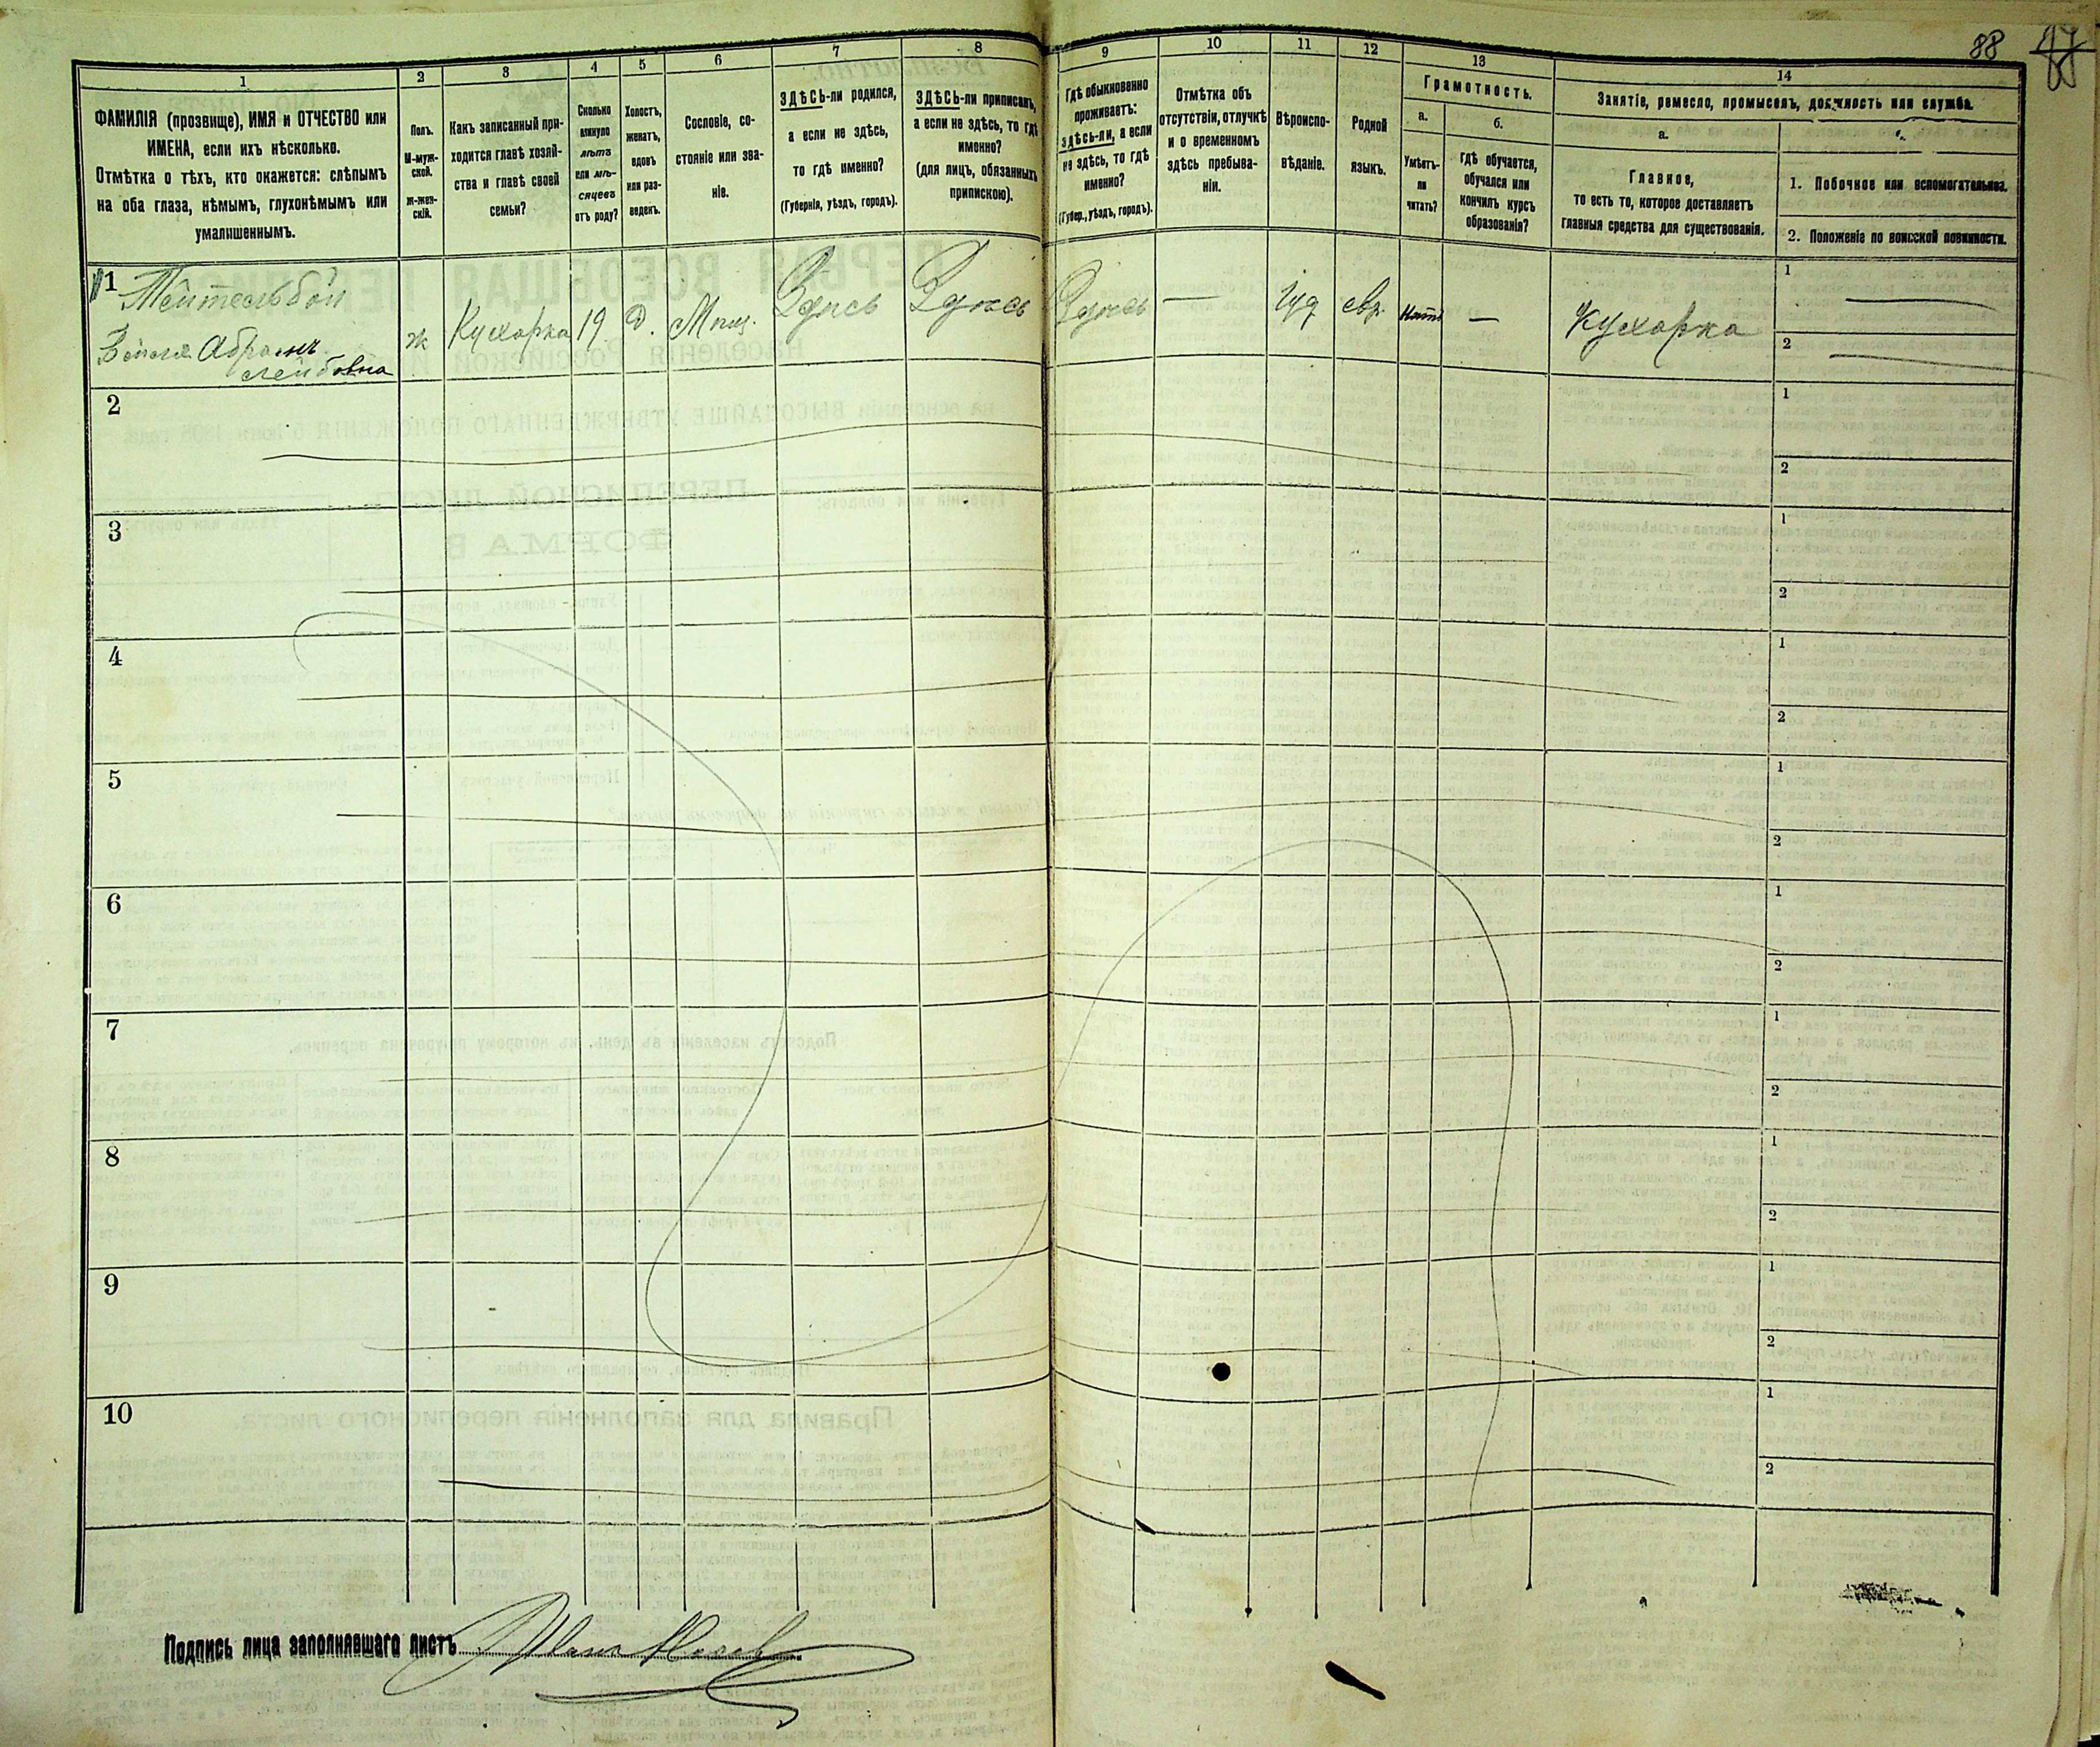 88
1
2
3
4
5
6
7
8
9
10
11
12
13
14
ФАМИЛІЯ (прозвище), ИМЯ и ОТЧЕСТВО или
ИМЕНА, если ихъ нѣсколько.
Отмѣтка о тѣхъ, кто окажется: слѣпымъ
на оба глаза, нѣмымъ, глухонѣмымъ или
умалишеннымъ.
Полъ.
М-муж-
ской.
Ж-жен-
скій.
Какъ записанный при-
ходится главѣ хозяй-
ства и главѣ своей
семьи?
Сколько
минуло
лѣтъ
или мѣ-
сяцевъ
отъ роду?
Холостъ,
женатъ,
вдовъ
или раз-
веденъ.
Сословіе, со-
стояніе или зва-
ніе.
ЗДѢСЬ-ли родился,
а если не здѣсь,
то гдѣ именно?
(Губернія, уѣздъ, городъ).
ЗДѢСЬ-ли приписанъ,
а если не здѣсь, то гдѣ
именно?
(для лицъ, обязанныхъ
припискою).
Гдѣ обыкновенно
проживаетъ:
здѣсь-ли, а если
не здѣсь, то гдѣ
именно?
(Губер., уѣздъ, городъ).
Отмѣтка объ
отсутствіи, отлучкѣ
и о временномъ
здѣсь пребыва-
ніи.
Вѣроиспо-
вѣданіе.
Родной
языкъ.
Грамотность.
а.
Умѣетъ-
ли
читать?
б.
гдѣ обучается,
обучался или
кончилъ курсъ
образованія?
Занятіе, ремесло, промыселъ, должность или служба.
а.
Главное,
то есть то, которое доставляетъ
главныя средства для существованія.
1. Побочное или вспомогательное.
2. Положеніе по воинской повинности.
1
Тейтельбои
Абрамъ
Лейбовна
ж
Кухарка
19
д.
Мѣщ.
Здѣсь
Здѣсь
Здѣсь
—
Іуд
евр.
нѣтъ
—
Кухарка
1
2
2
1
2
3
1
2
4
1
2
5
1
2
6
1
2
7
1
2
8
1
2
9
1
2
10
1
2
Подпись лица заполнявшаго листъ